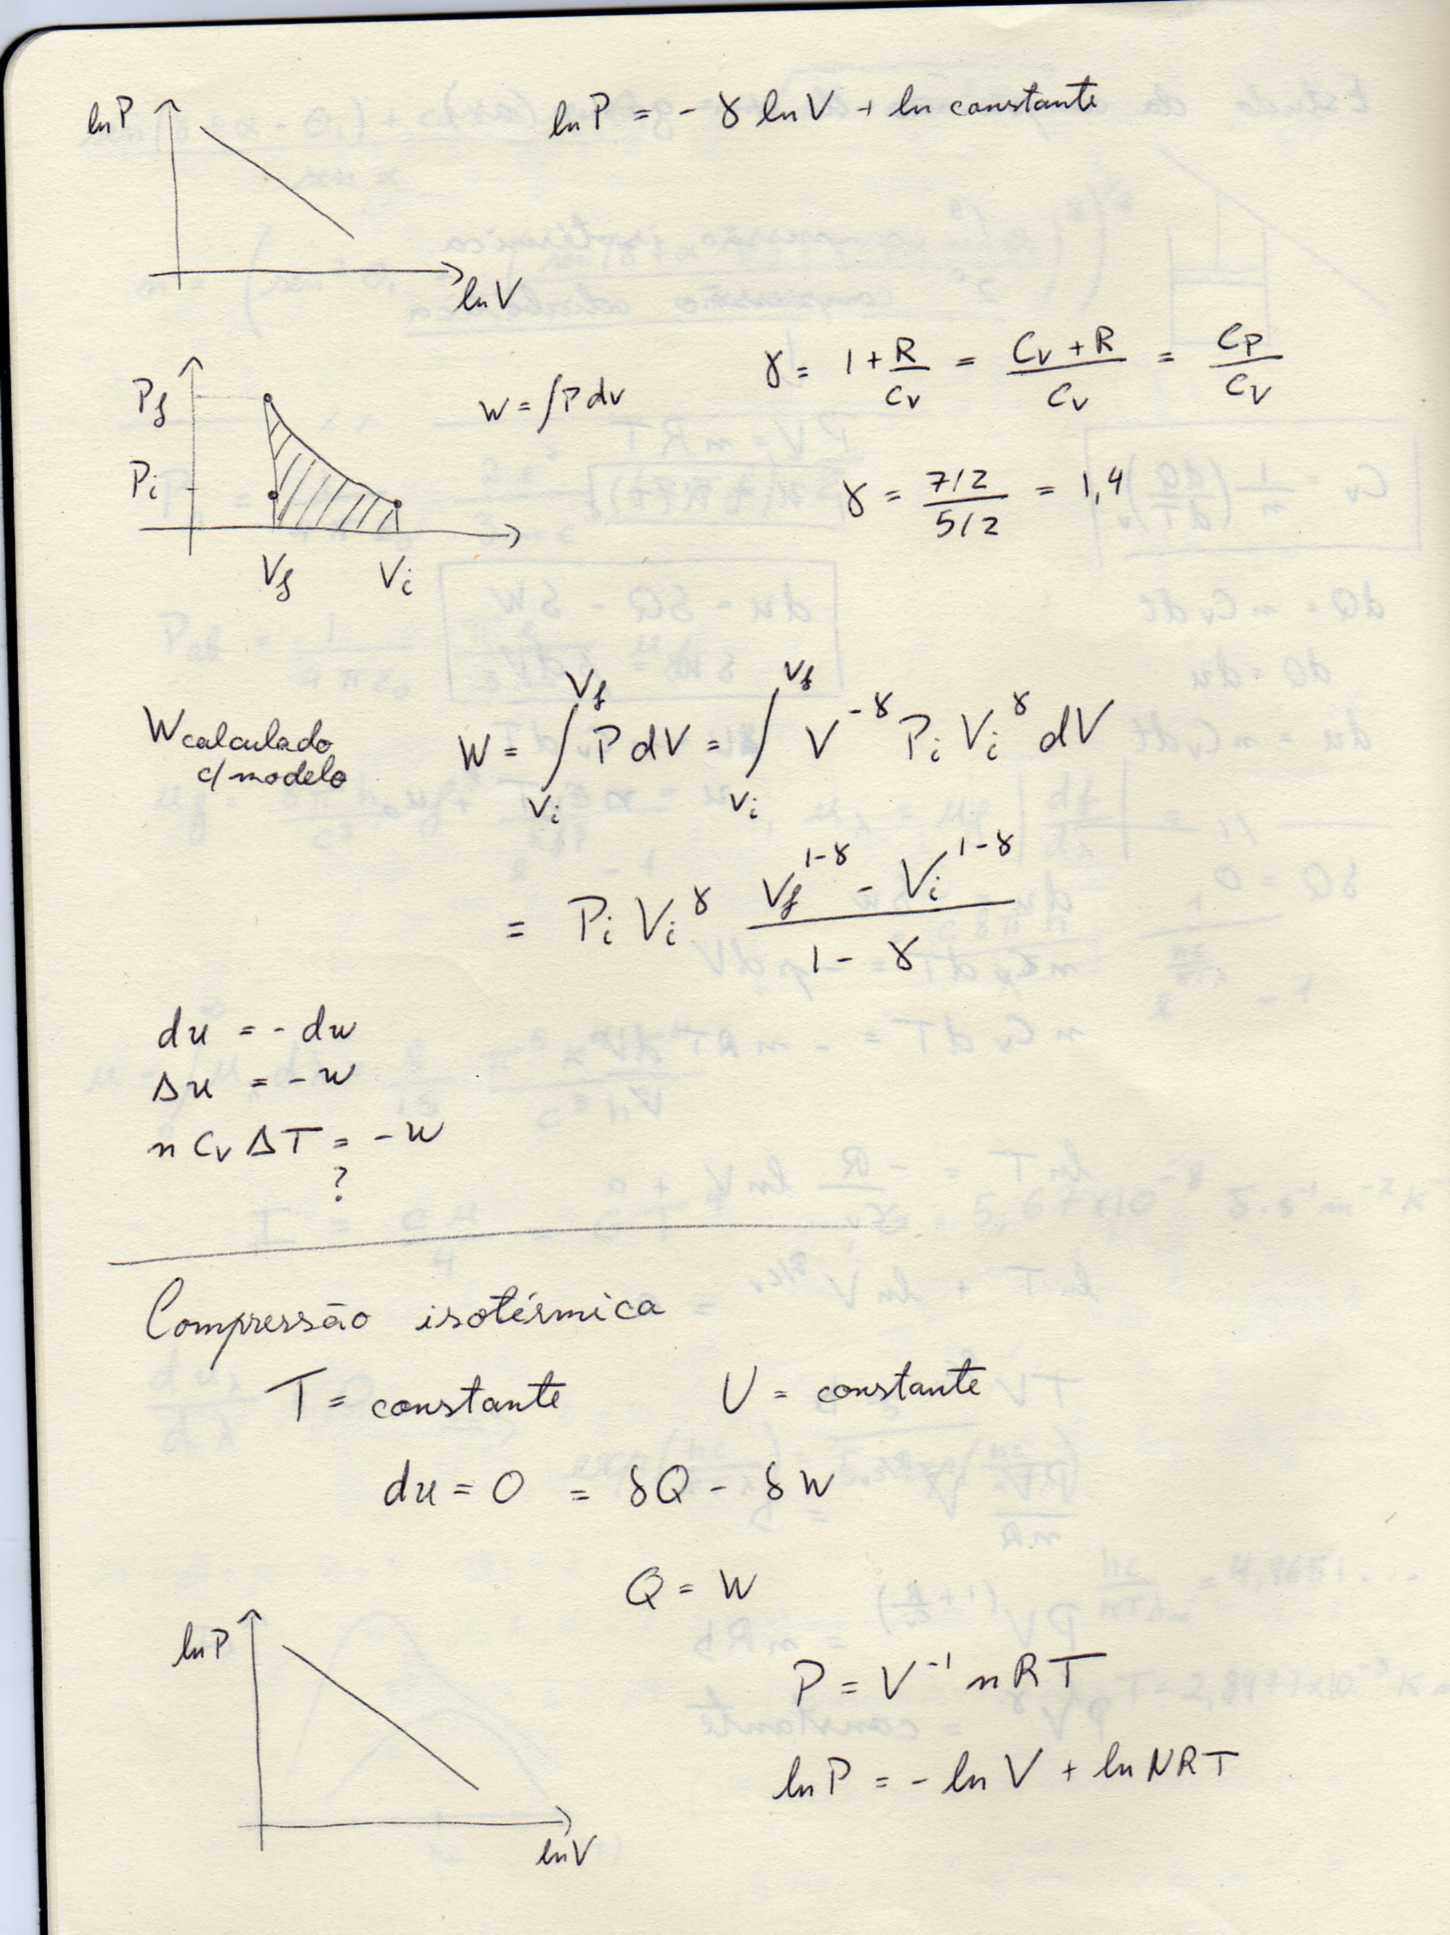 lnP
ln P = - γ ln V + ln constante
ln V
γ = 1 + R/Cv = (Cv + R)/Cv = Cp/Cv
Pf
W = ∫P dv
Pi
γ = 7/2 / 5/2 = 1,4
Vf Vi
W calculado
c/ modelo
W = ∫_{Vi}^{Vf} P dV = ∫_{Vi}^{Vf} V^{-γ} Pi Vi^γ dV
= Pi Vi^γ (Vf^{1-γ} - Vi^{1-γ})/(1 - γ)
du = - dw
Δu = - w
n Cv ΔT = - w
?
Compressão isotérmica
T = constante U = constante
du = 0 = δQ - δW
Q = W
lnP
P = V^{-1} n R T
ln P = - ln V + ln NRT
ln V